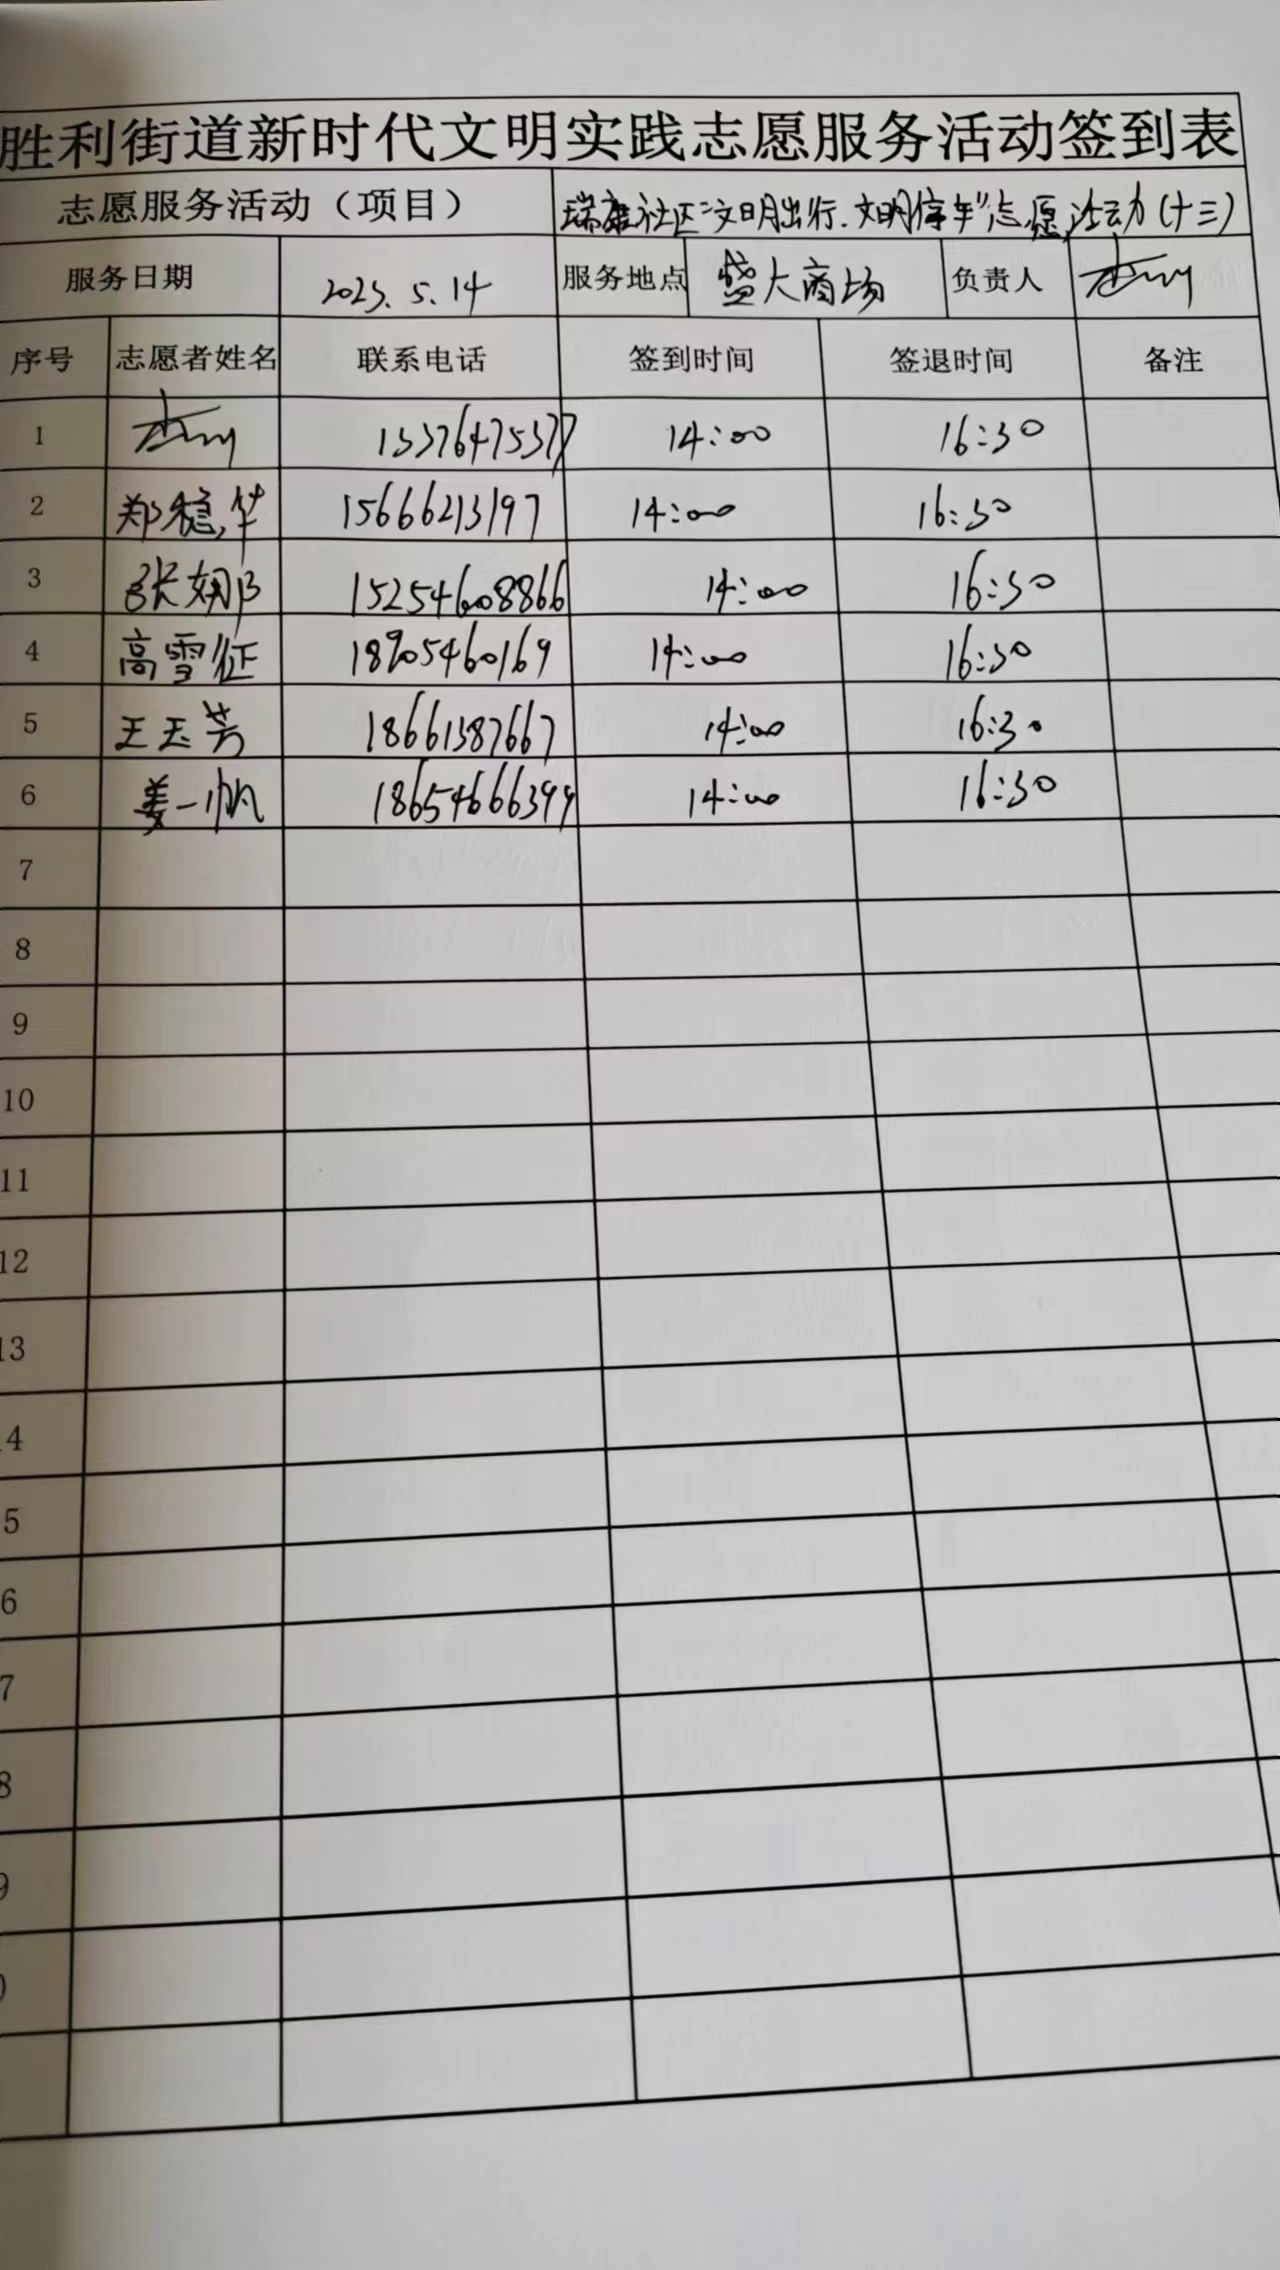 胜利街道新时代文明实践志愿服务活动签到表
志愿服务活动（项目） 瑞康社区"文明出行.文明停车"志愿活动(十三)
服务日期 2023.5.14 服务地点 盛大商场 负责人
序号 志愿者姓名 联系电话 签到时间 签退时间 备注
1 13376475377 14:00 16:30
2 郑稳华 15666213197 14:00 16:30
3 张 15254608866 14:00 16:30
4 高雪征 18905460169 14:00 16:30
5 王玉芳 18661387667 14:00 16:30
6 姜一帆 18654666399 14:00 16:30
7
8
9
10
11
12
13
4
5
6
7
8
9